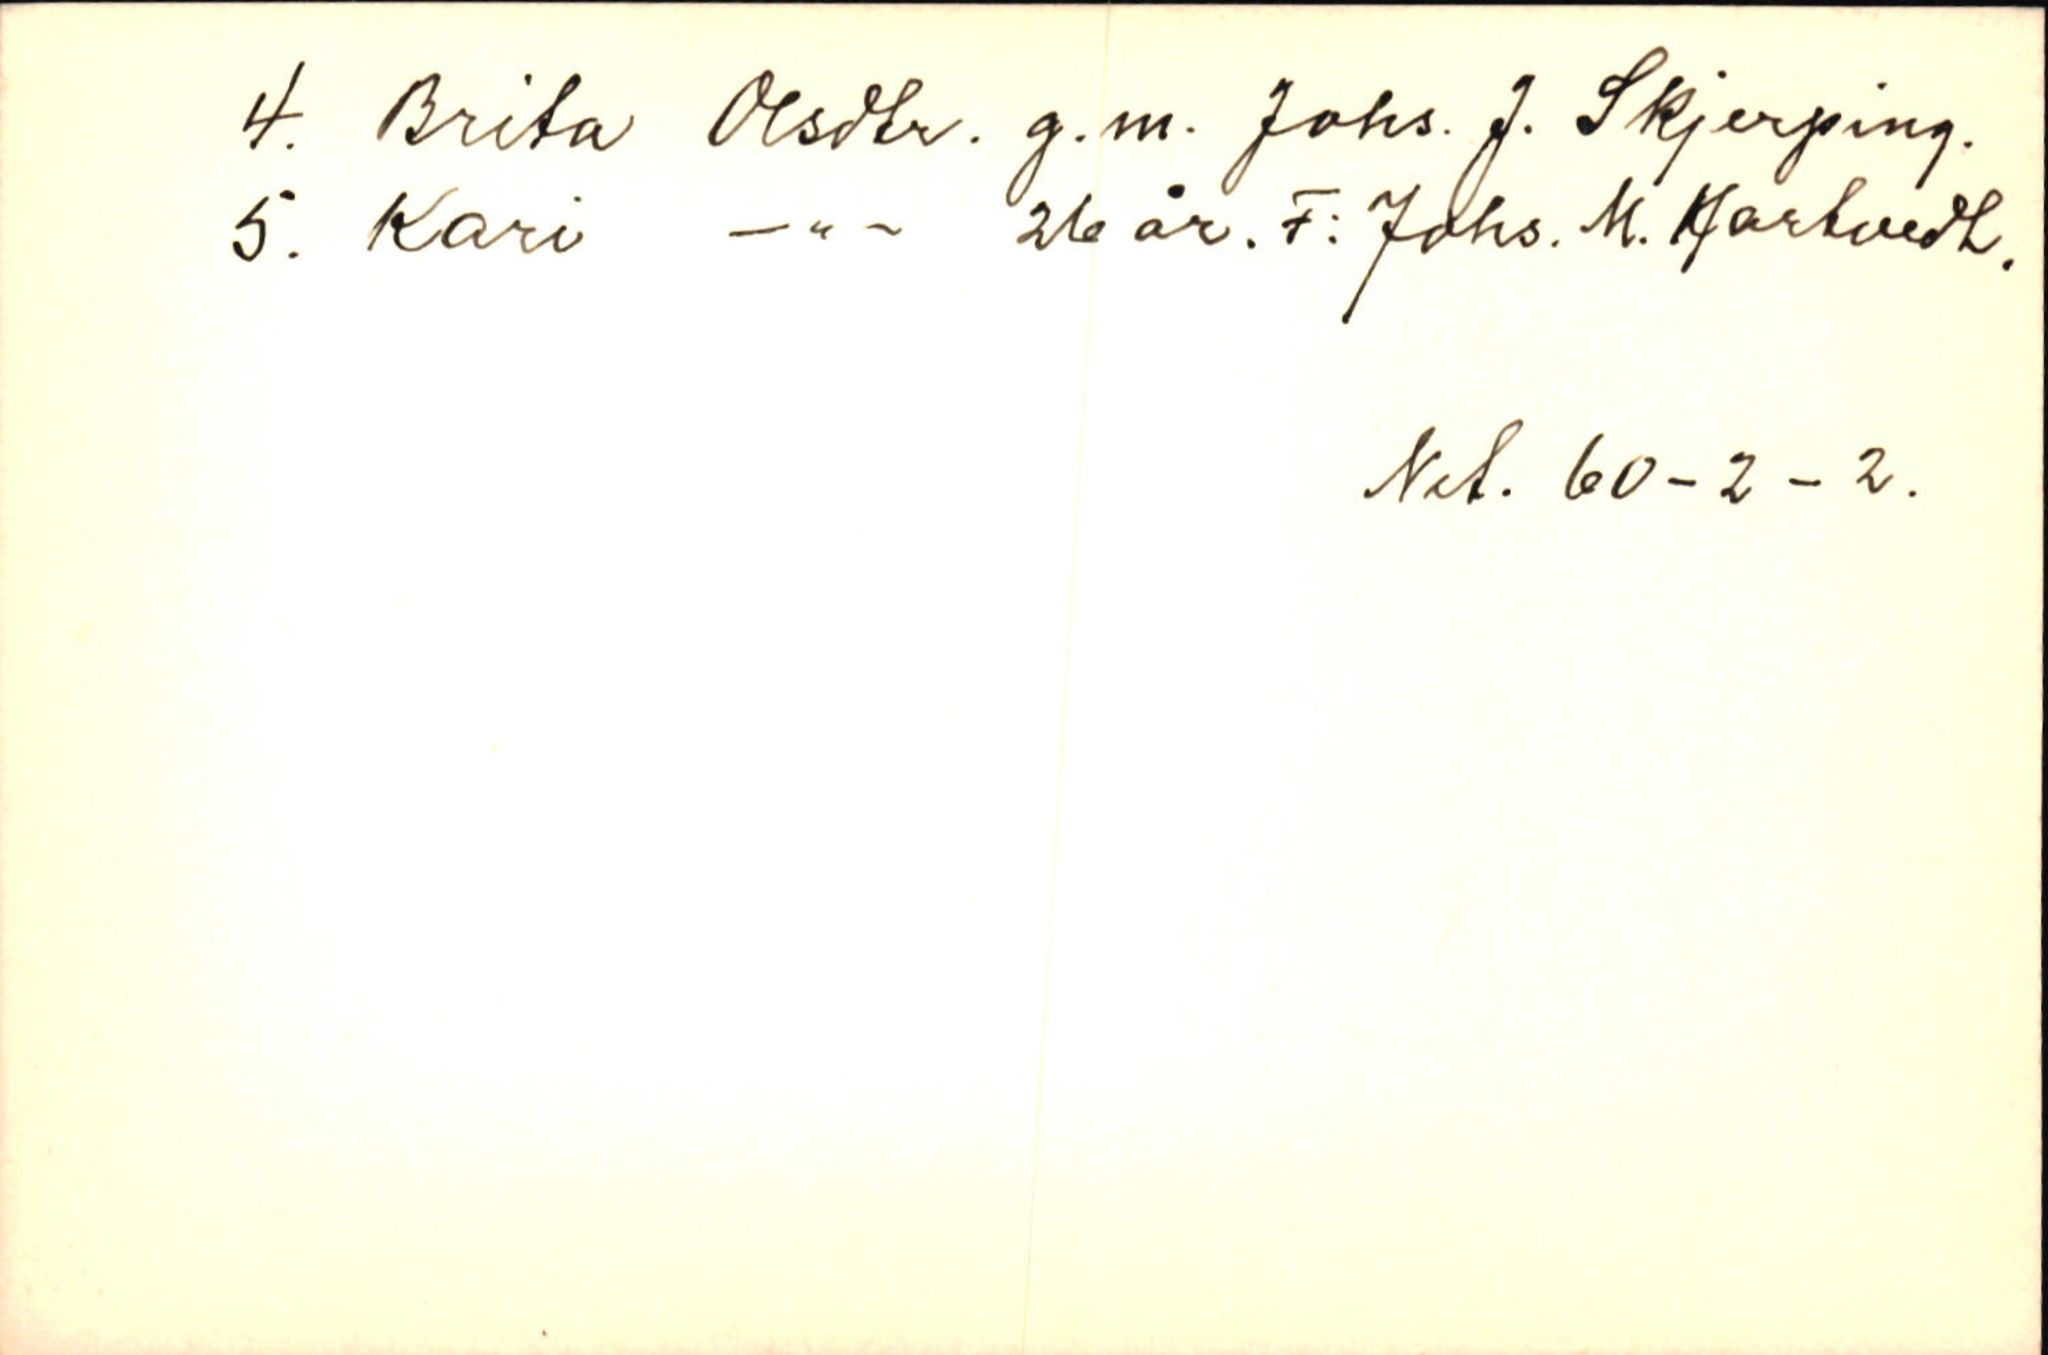 4. Brita Olsdtr. g.m. Johs. J. Skjerping.
5. Kari —"— 26 år. F: Johs. M. Hartvedt.
Net. 60-2-2.